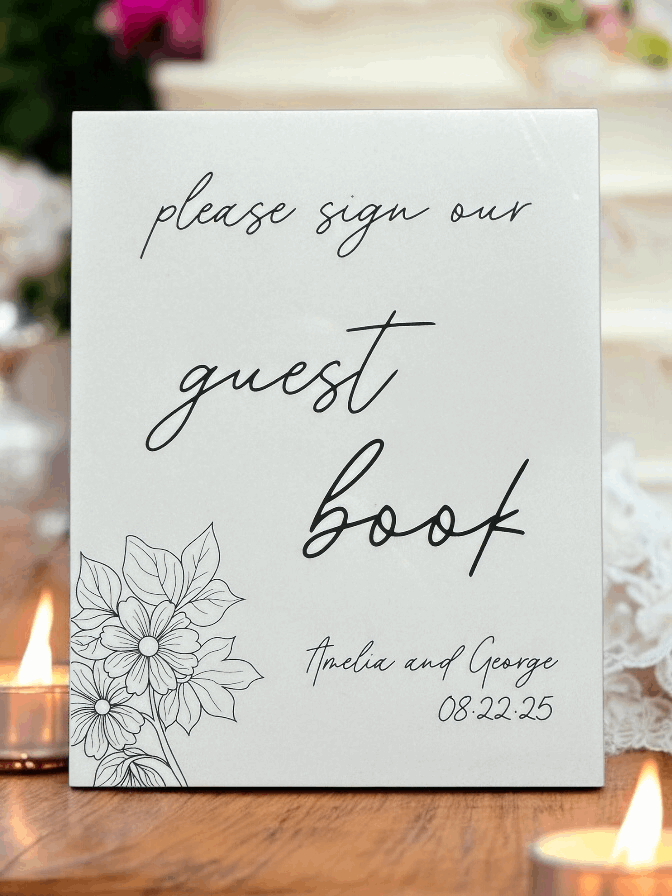 please sign our
guest
book
Amelia and George
08·22·25